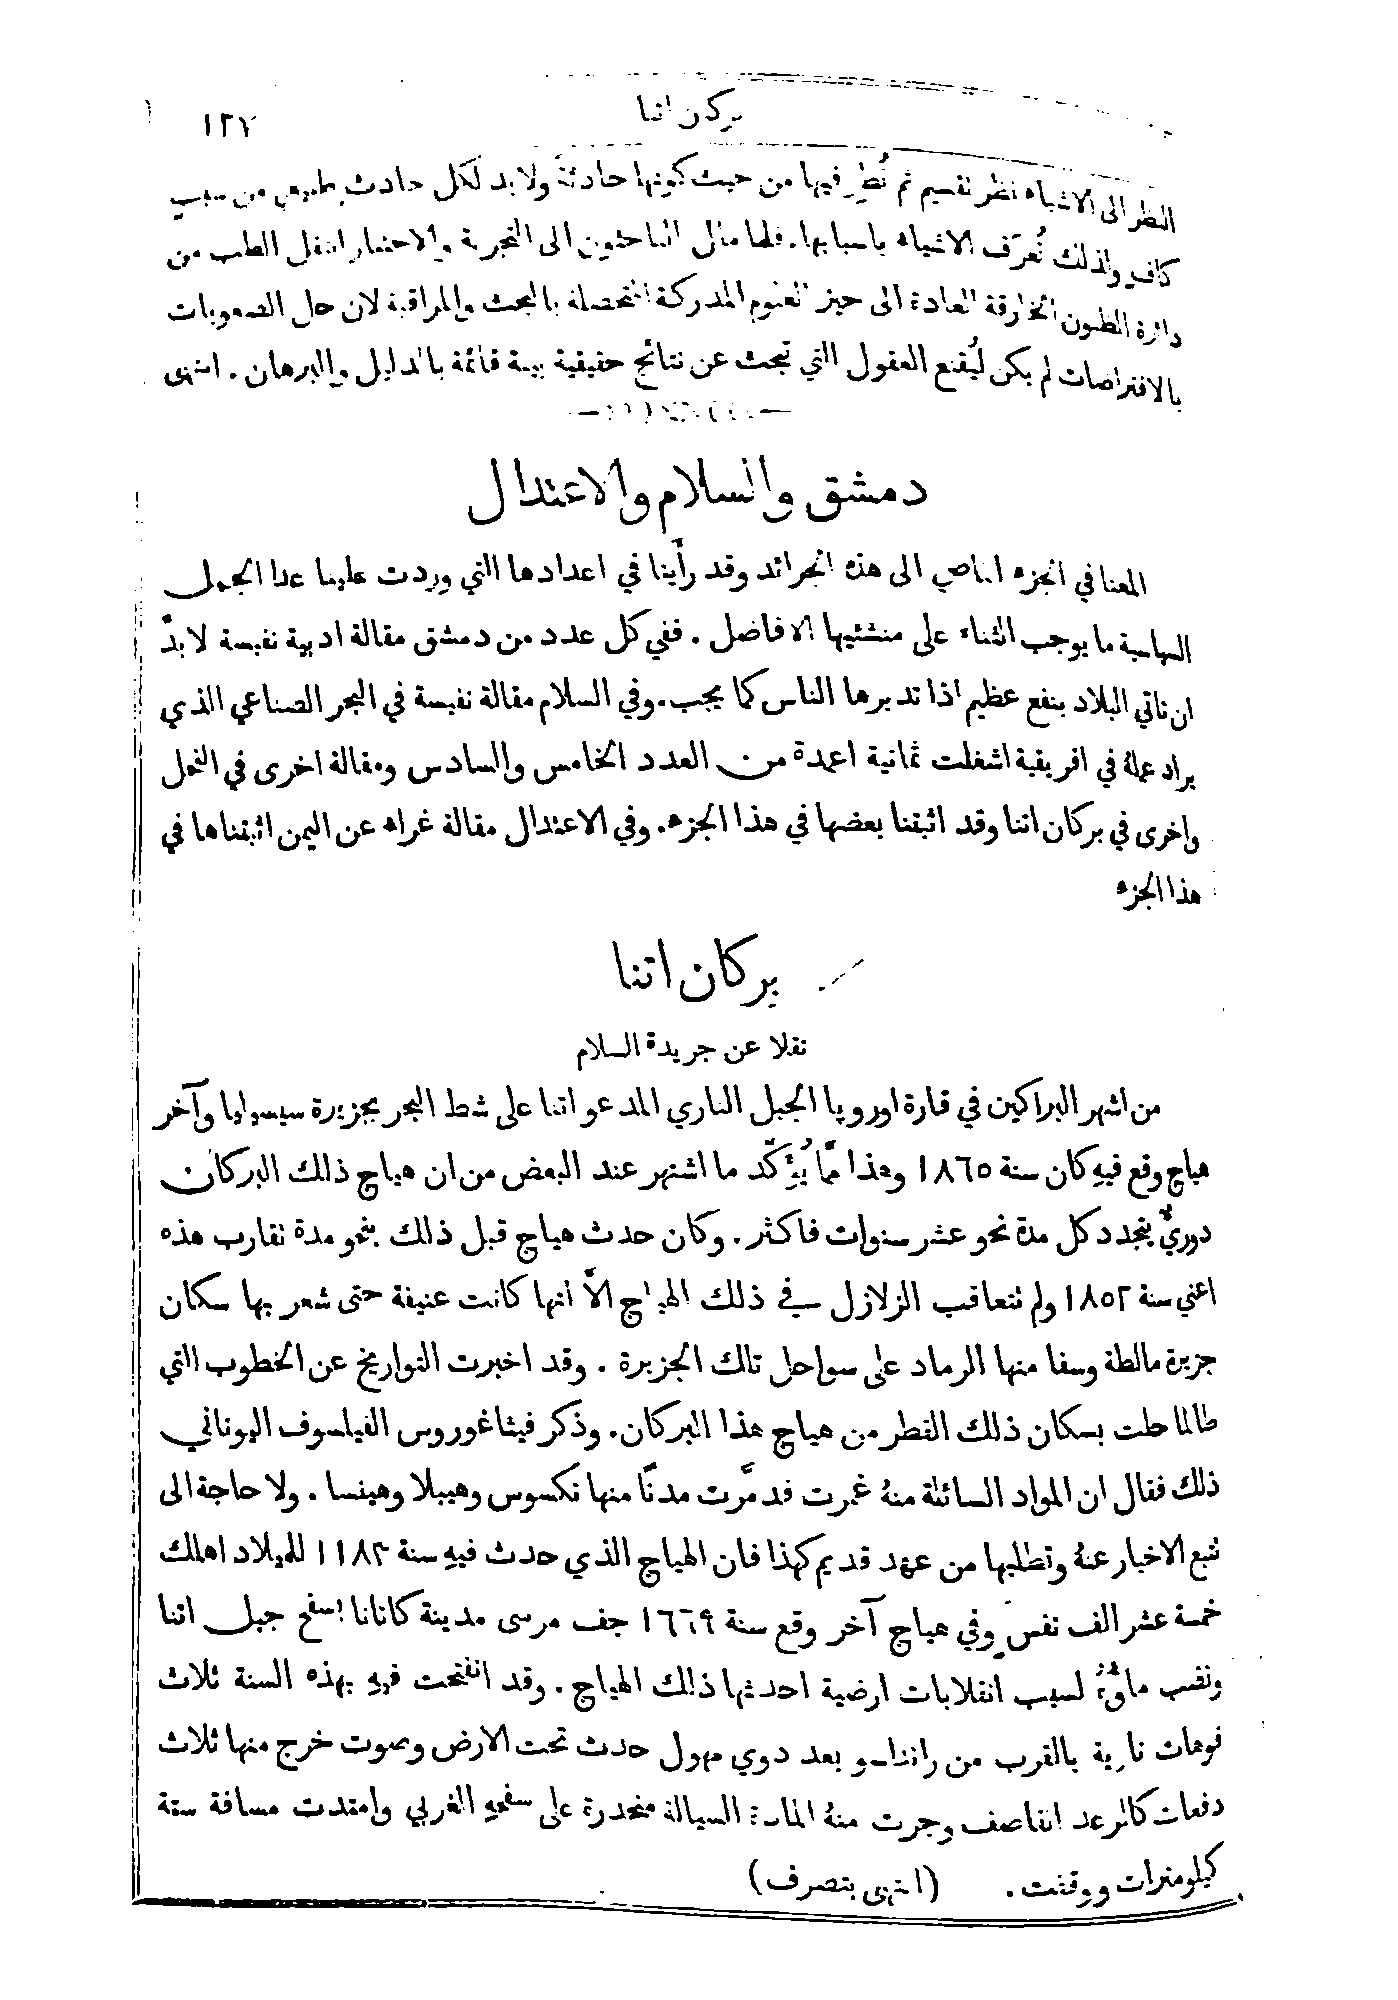 بركان اتنا
١٢٧
النظر الى الاشياء نظر تقسيم ثم نُظر فيها من حيث كونها حادثةً ولا بد لكل حادث طبيعي من سبب
كافٍ ولذلك تُعرَف الاشياء باسبابها. فلما مال الباحثون الى التجربة والاختبار انتقل الطب من
دائرة الظنون الخارقة العادة الى حيز العلوم المدركة المتحصلة بالبحث والمراقبة لان حل الصعوبات
بالافتراضات لم يكن ليُقنع العقول التي تبحث عن نتائج حقيقية بينة قائمة بالدليل والبرهان. انتهى
دمشق والسلام والاعتدال
المعنا في الجزء الماضي الى هذه الجرائد وقد رأَينا في اعدادها التي وردت علينا عدا الجمل
السياسية ما يوجب الثناء على منشئيها الافاضل. ففي كل عدد من دمشق مقالة ادبية نفيسة لا بدَّ
ان تاتي البلاد بنفع عظيم اذا تدبرها الناس كما يجب. وفي السلام مقالة نفيسة في البحر الصناعي الذي
يراد عملهُ في افريقية اشغلت ثمانية اعمدة من العدد الخامس والسادس ومقالة اخرى في النمل
واخرى في بركان اتنا وقد اثبتنا بعضها في هذا الجزء. وفي الاعتدال مقالة غراء عن اليمن اثبتناها في
هذا الجزء
بركان اتنا
نقلا عن جريدة السلام
من اشهر البراكين في قارة اوروپا الجبل الناري المدعو اتنا على شط البحر بجزيرة سيسيليا وآخر
هياج وقع فيهِ كان سنة ١٨٦٥ وهذا ممَّا يُؤَكّد ما اشتهر عند البعض من ان هياج ذلك البركان
دوريٌّ يتجدد كل مدة نحو عشر سنوات فاكثر. وكان حدث هياج قبل ذلك بنحو مدة تقارب هذه
اعني سنة ١٨٥٢ ولم تتعاقب الزلازل في ذلك الهياج الاَّ انها كانت عنيفة حتى شعر بها سكان
جزيرة مالطة وسفا منها الرماد على سواحل تلك الجزيرة. وقد اخبرت التواريخ عن الخطوب التي
طالما حلت بسكان ذلك القطر من هياج هذا البركان. وذكر فيثاغوروس الفيلسوف اليوناني
ذلك فقال ان المواد السائلة منهُ غمرت فدمَّرت مدنًا منها نكسوس وهيبلا وهينسا. ولا حاجة الى
تتبع الاخبار عنهُ وتطلبها من عهد قديم كهذا فان الهياج الذي حدث فيهِ سنة ١١٨٢ للميلاد اهلك
خمسة عشر الف نفس وفي هياج آخر وقع سنة ١٦٦٩ جف مرسى مدينة كاتانا بسفح جبل اتنا
ونضب ماؤهُ لسبب انقلابات ارضية احدثها ذلك الهياج. وقد انفتحت فيهِ بهذه السنة ثلاث
فوهات نارية بالقرب من رانداسو بعد دوي مهول حدث تحت الارض وصوت خرج منها ثلاث
دفعات كالرعد القاصف وجرت منهُ المادة السيالة منحدرة على سفحهِ الغربي وامتدت مسافة ستة
كيلومترات ووقفت. (انتهى بتصرف)